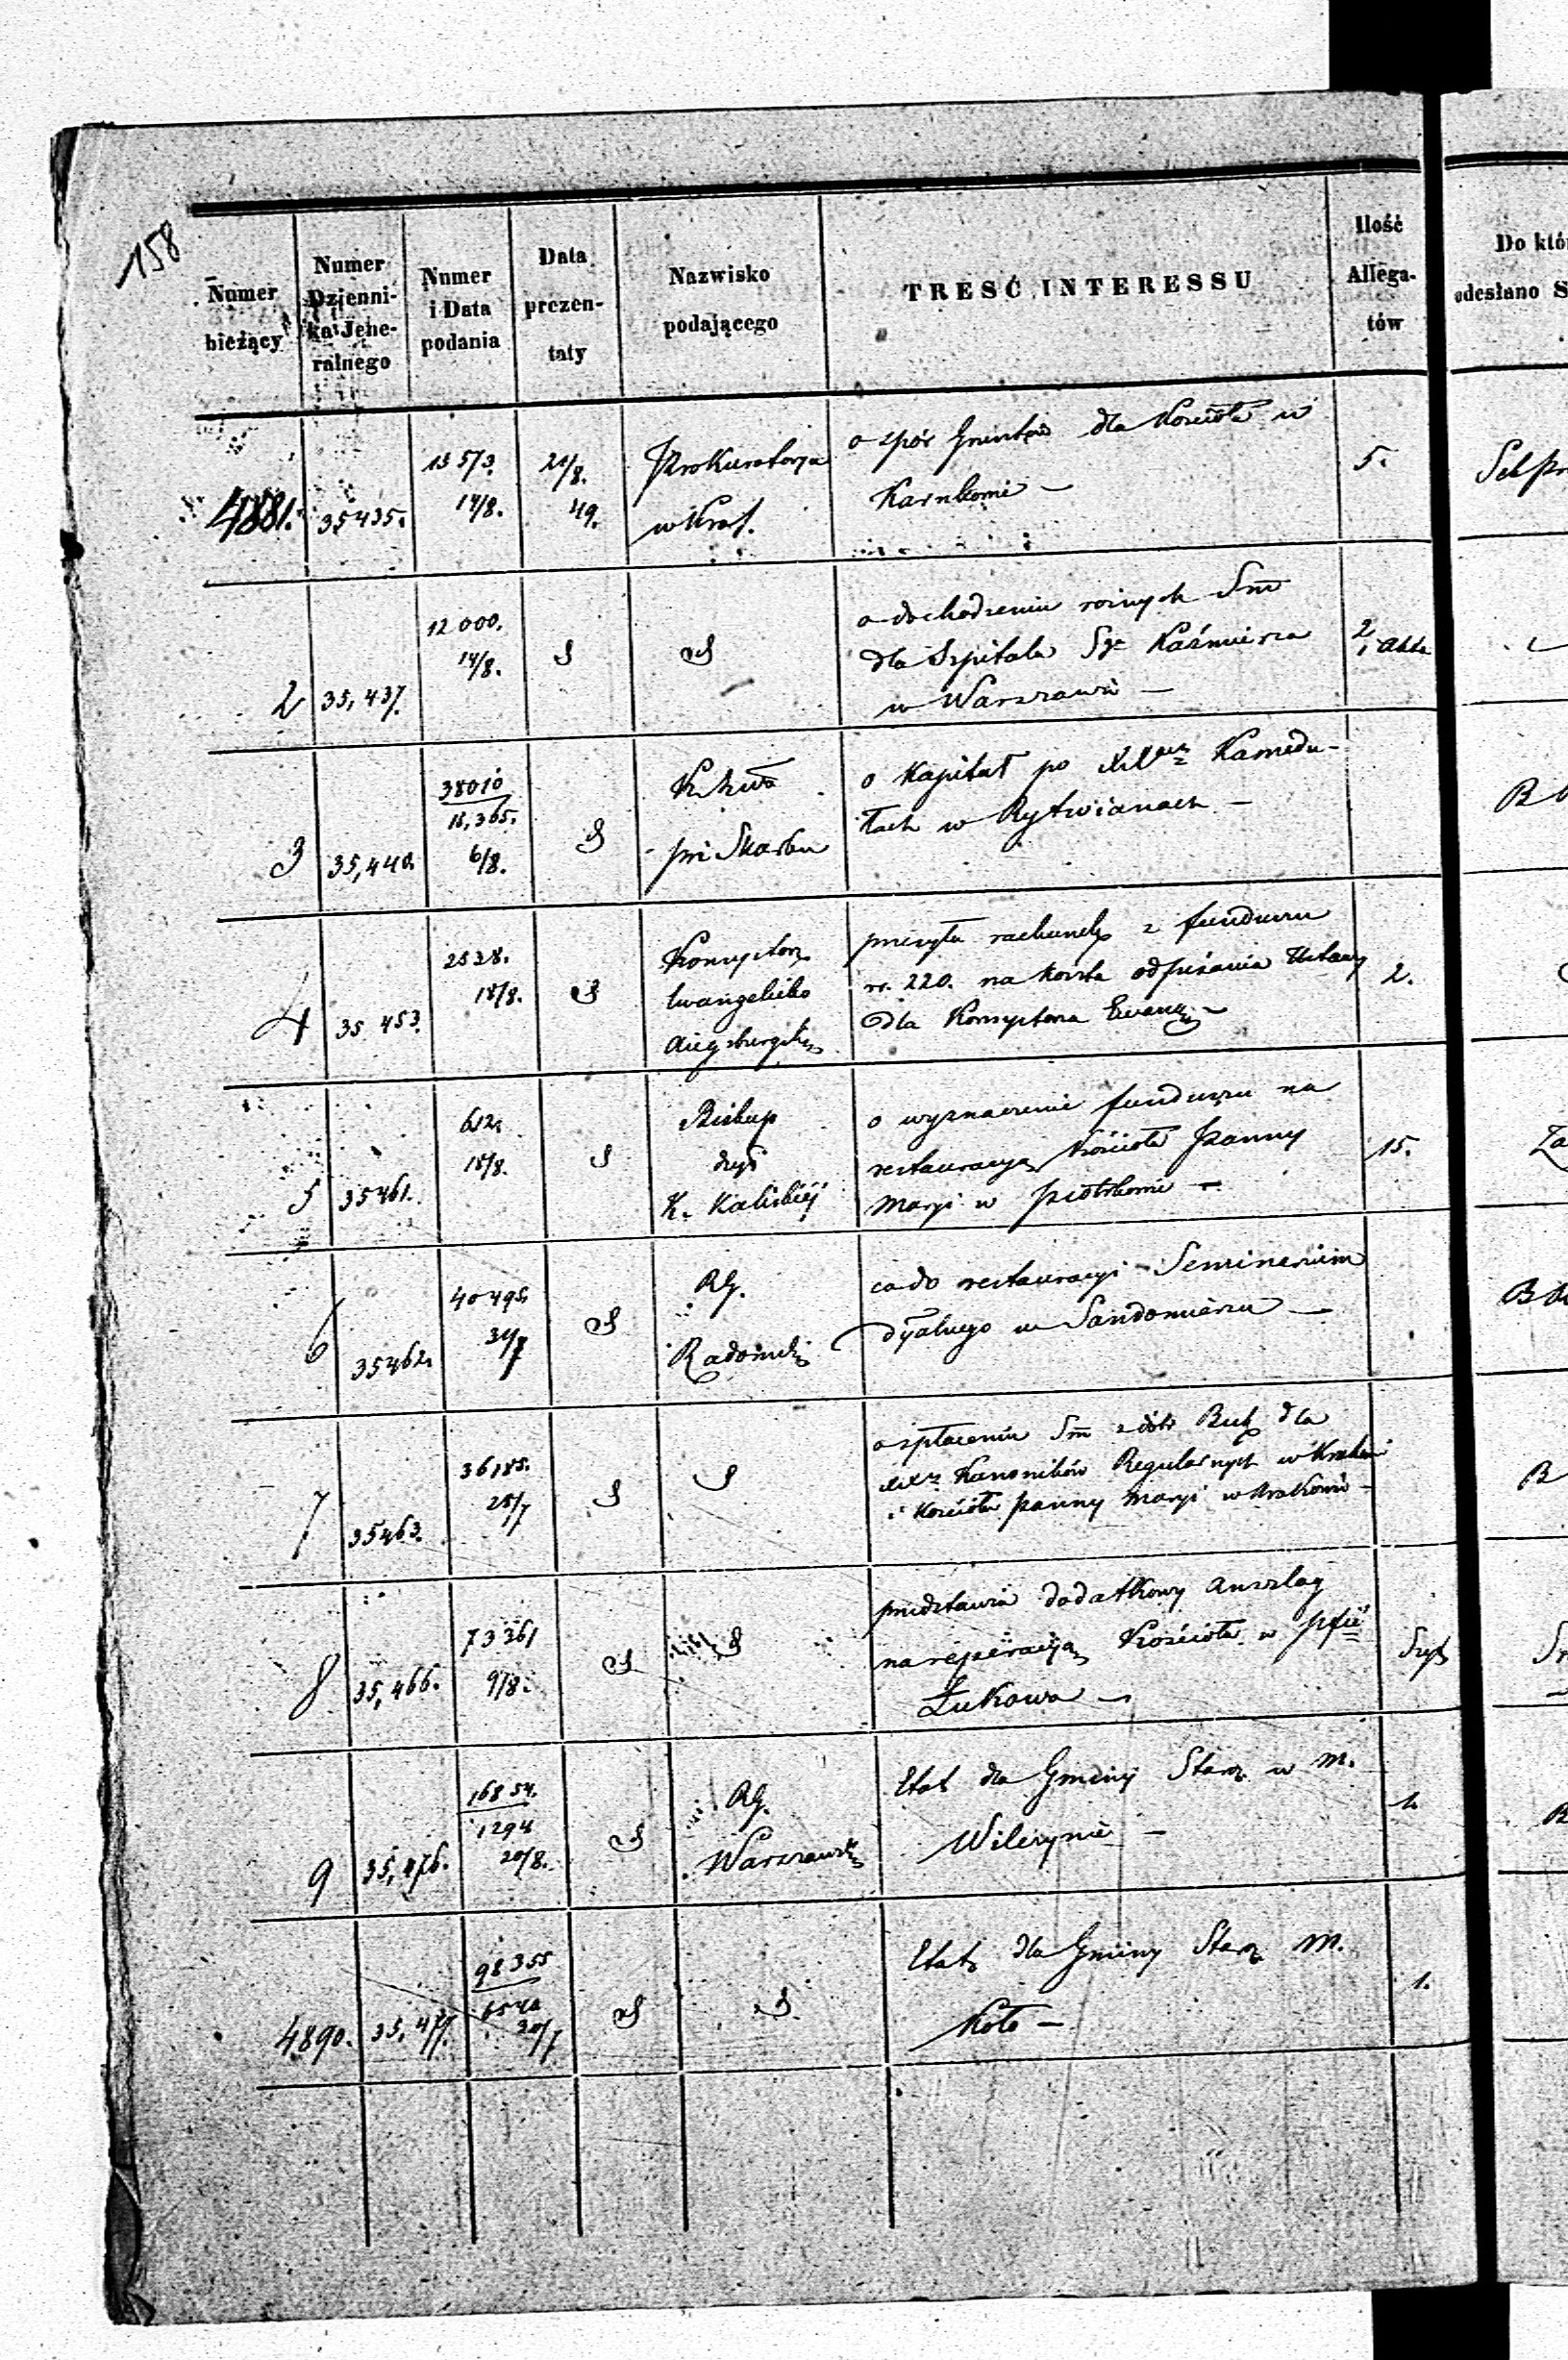 158
Numer
bieżący
Numer
Dzienni-
ka Jene-
ralnego
Numer
i Data
podania
Data
prezen-
taty
Nazwisko
podającego
TREŚĆ INTERESSU
Ilość
Allega-
tów
Do któ
odesłano S
4881. 35435. 13573. 14/8. 21/8. 49. Prokuratorya
w Król.
o spór Gruntów dla Kościoła w
Karnkowie —
5.
2 35,437. 12000. 14/8.
o dochodzeniu rożnych Sm
dla Szpitala Sgo Kaźmierza
w Warszawie —
2
3 35,440. 38010
18,365. 6/8.
pri Skarbu
o Kapitał po XX Kamedu-
łach w Rytwianach —
4 35 453. 2528. 18/8. Konsystorz
Ewangelicko
Augsburgski
przesyła rachunek z funduszu
rs. 220. na koszta odpisania Ustawy
dla Konsystorza Ewang. —
2.
5 35461. 612. 18/8. Biskup
dyi
K. Kaliskiéj
o wyznaczenie funduszu na
restauracyą Kościoła Panny
Maryi w Piotrkowie —
15.
6 35462. 40495. 31/7 RG.
Radomski
co do restauracyi Seminarium
dyalnego w Sandomierzu —
7 35463. 36185. 28/7
o spłaceniu Sm z dóbr dla
XX Kanoników Regularnych w Krakowie
i Kościoła Panny Maryi w Krakowie —
8 35,466. 73361 9/8.
przedstawia dodatkowy Anszlag
na reperacyą Kościoła w
Łukowa —
9 35,476. 16854.
1294 20/8. RG.
Warszawski
Etat dla Gminy Staroz. w M.
Wilczynie —
1.
4890. 35,477. 98355
6540 30/7
Etat dla Gminy Staroz. M.
Koło —
1.